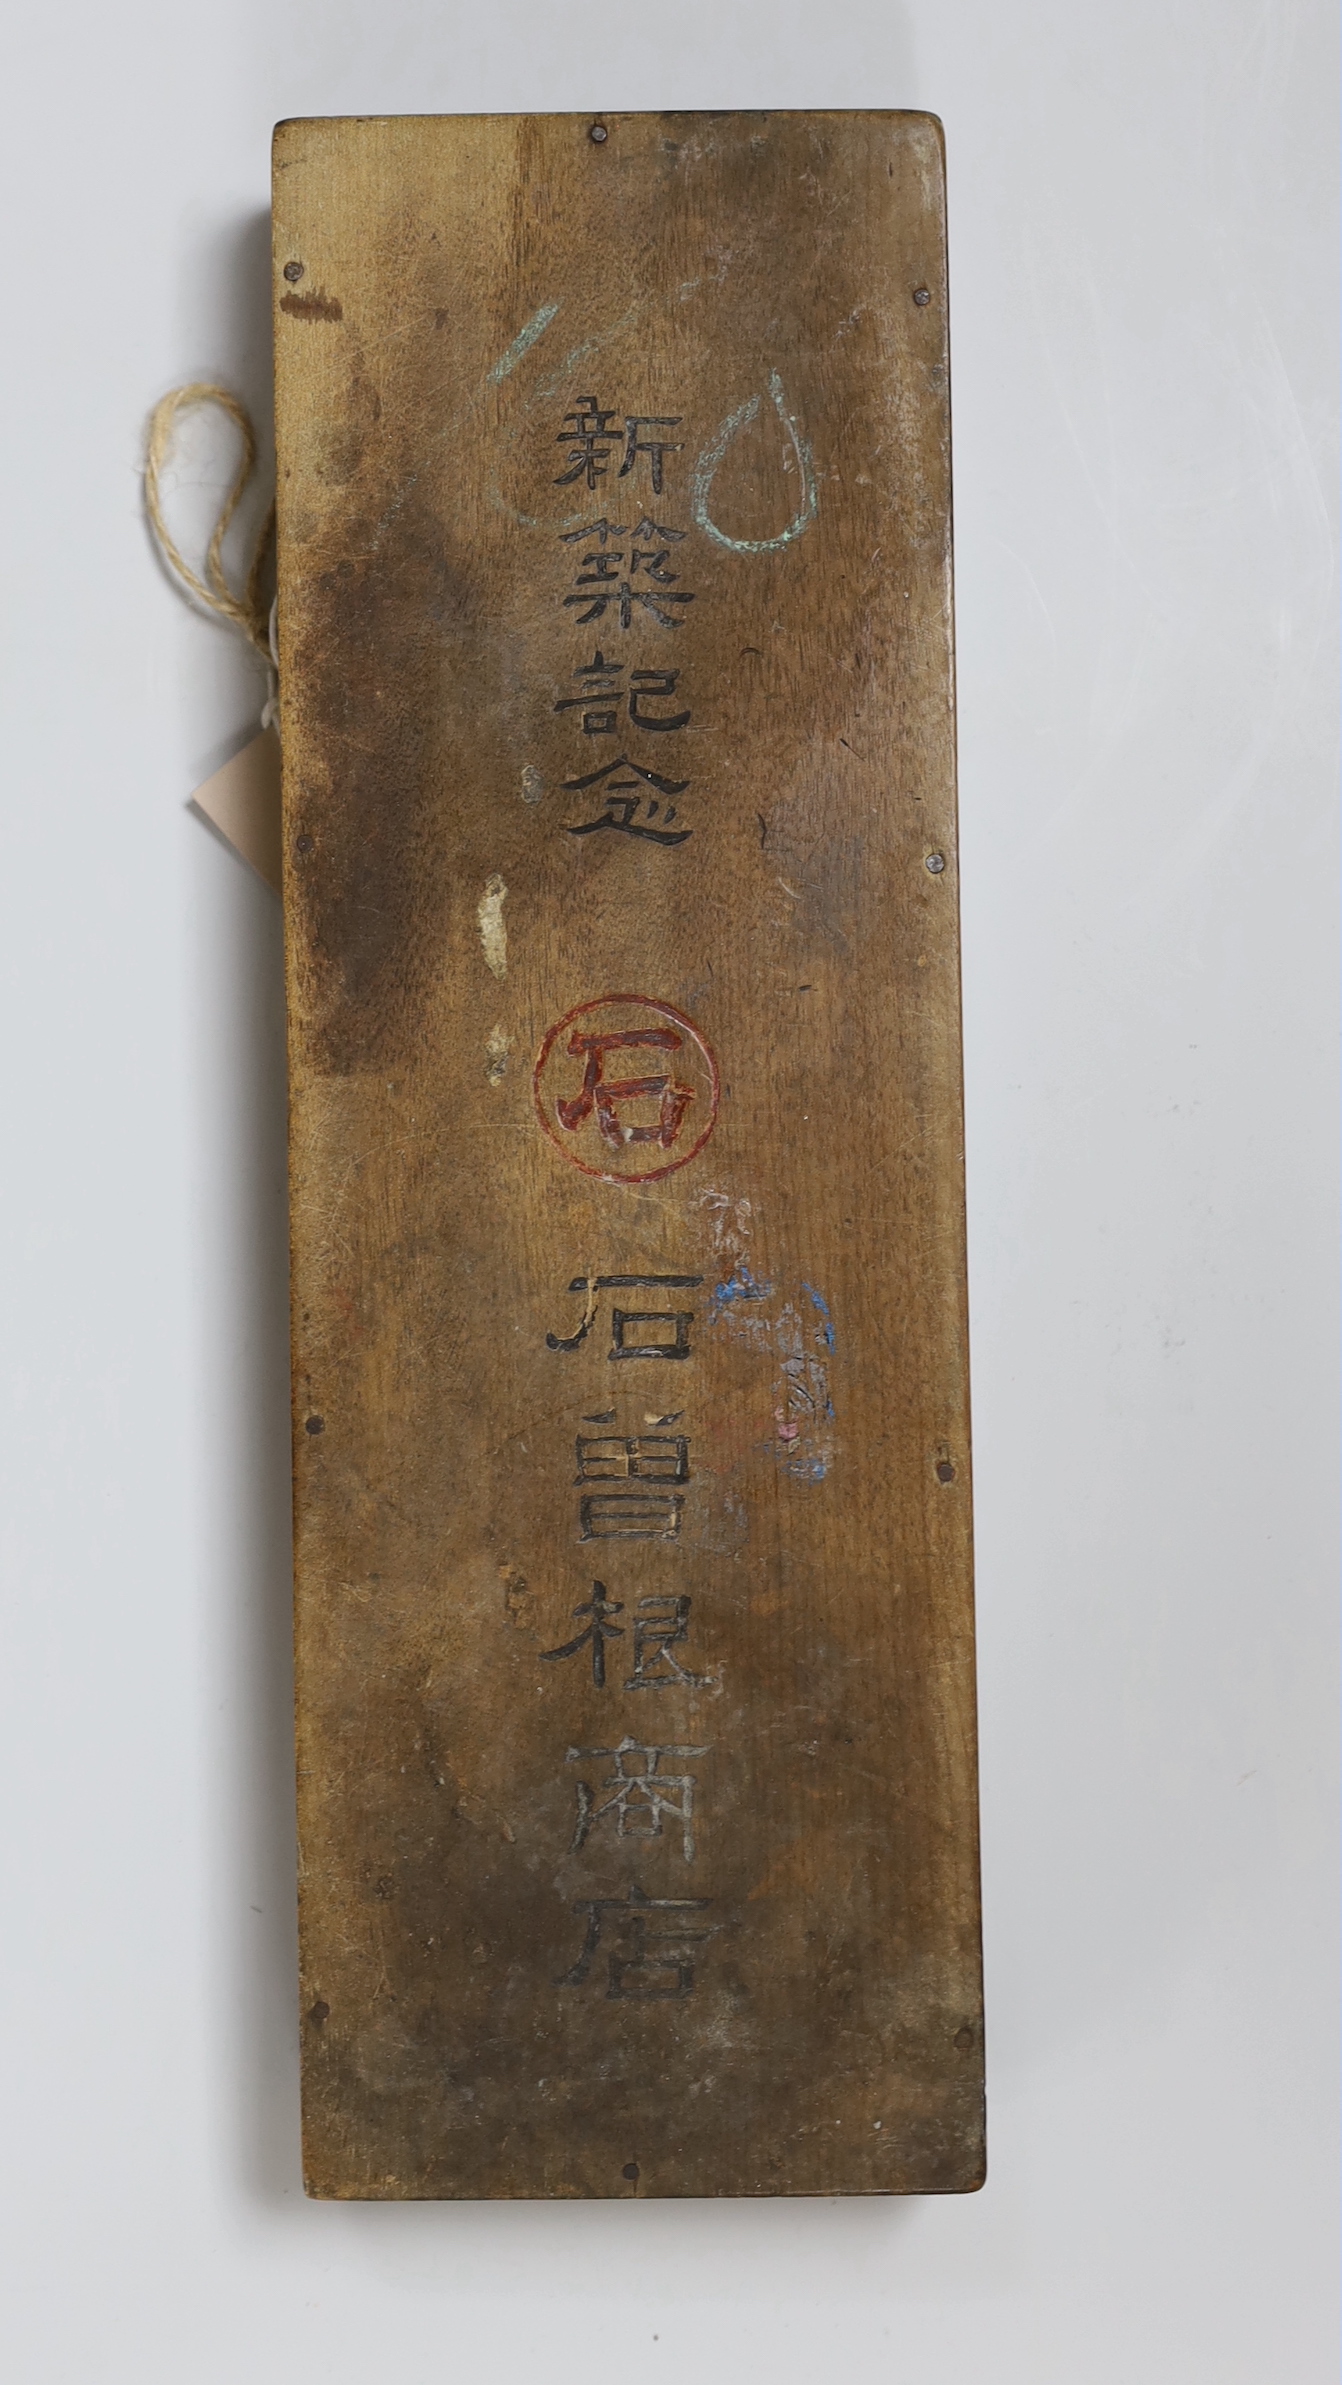 新築記念
石
石曽根商店